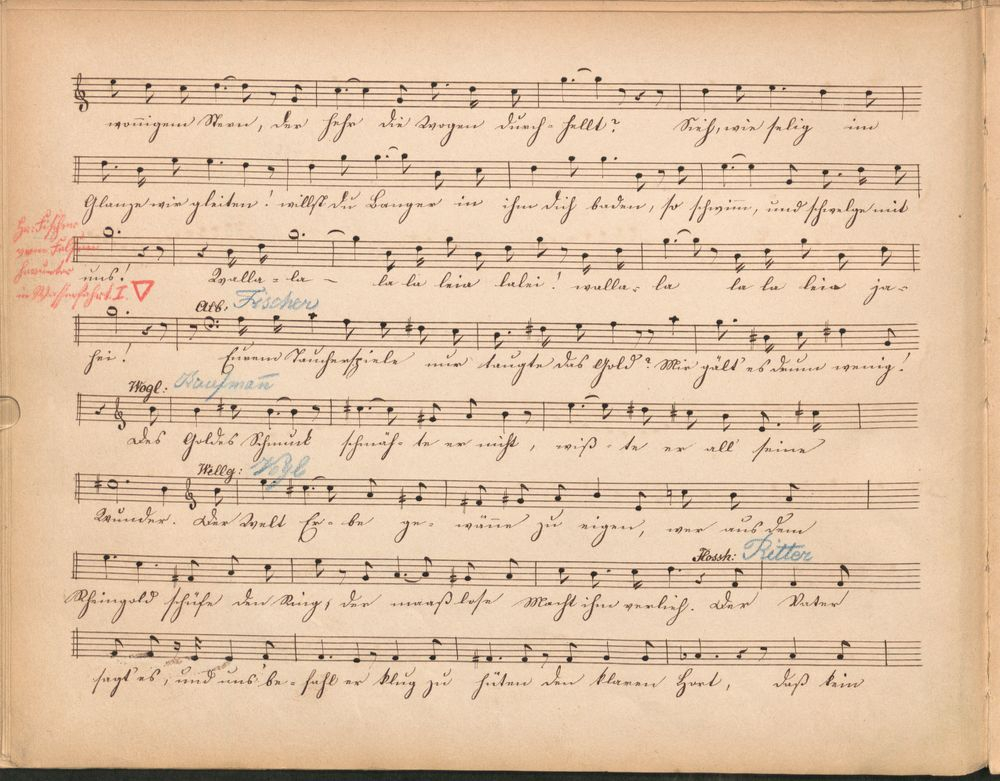 wonnigem Stern, der hehr die Wogen durch-hellt? Sieh, wie selig im
Glanze wir gleiten! willst du Banger in ihm dich baden, so schwim̄, und schwelge mit
Hr: Fischer
vom Felsen
herunter
in Wasserfahrt I.
uns! Walla-la- la la leia lalei! walla-la la la leia ja-
Alb. Fischer
hei! Eurem Taucherspiele nur taugte das Gold? Mir gält' es drum wenig!
Wogl: Kaufman̄
Des Goldes Schmuck schmäh-te er nicht, wüß-te er all seine
Wellg: Vogl
Wunder. Der Welt Er-be ge-wän̄e zu eigen, wer aus dem
Flossh: Ritter
Rheingold schüfe den Ring, der maaßlose Macht ihm verlieh. Der Vater
sagt' es, und uns be-fahl er klug zu hüten den klaren Hort, daß kein